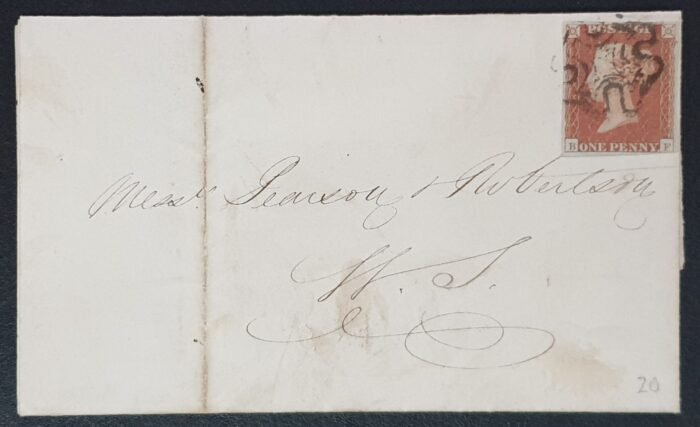 POSTAGE
B ONE PENNY F
Messrs Pearson & Robertson
W. S.
20